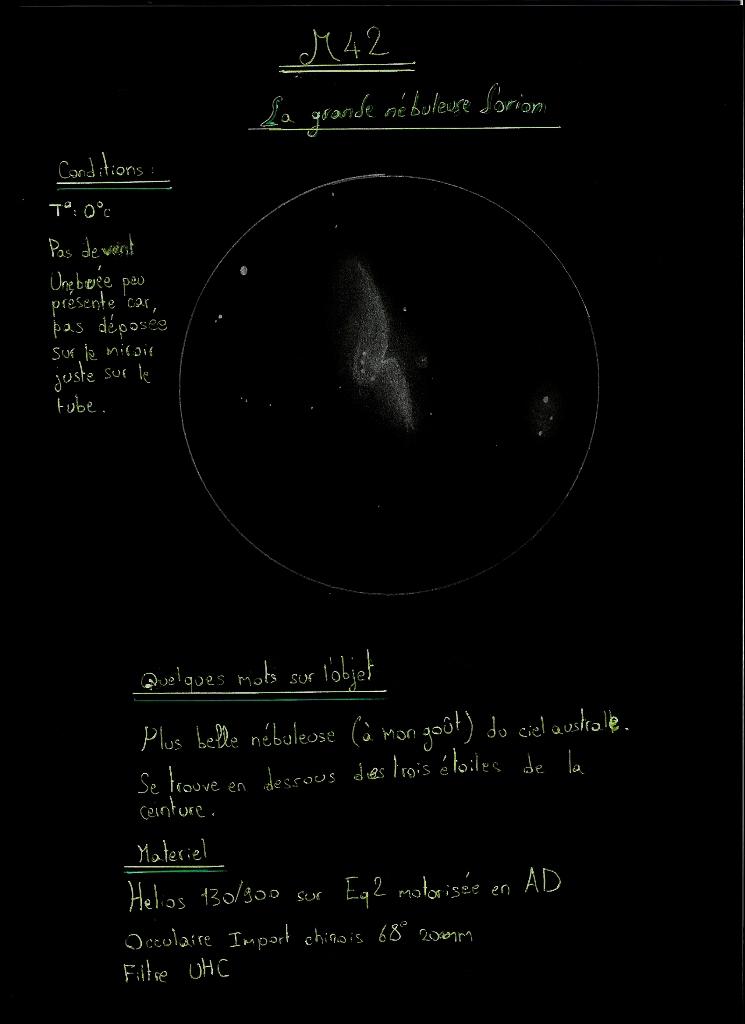 M42
La grande nébuleuse d'orion
Conditions :
T°: 0°c
Pas de vent
Une buée peu
présente car,
pas déposée
sur le miroir
juste sur le
tube.
Quelques mots sur l'objet
Plus belle nébuleuse (à mon goût) du ciel australe.
Se trouve en dessous des trois étoiles de la
ceinture.
Materiel
Helios 130/900 sur Eq2 motorisée en AD
Occulaire Import chinois 68° 20mm
Filtre UHC